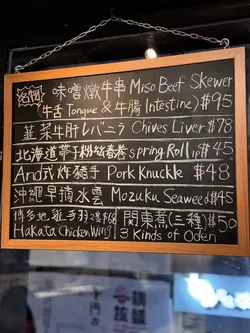 味噌燉牛串 Miso Beef Skewer
(牛舌 Tongue & 牛腸 Intestine) $95
韮菜牛肝レバニラ Chives Liver $78
Spring Roll 1P $45
And式炸豬手 Pork Knuckle $48
沖繩早摘水雲 Mozuku Seaweed $45
Hakata Chicken Wing
關東煮(三種) $50
3 Kinds of Oden